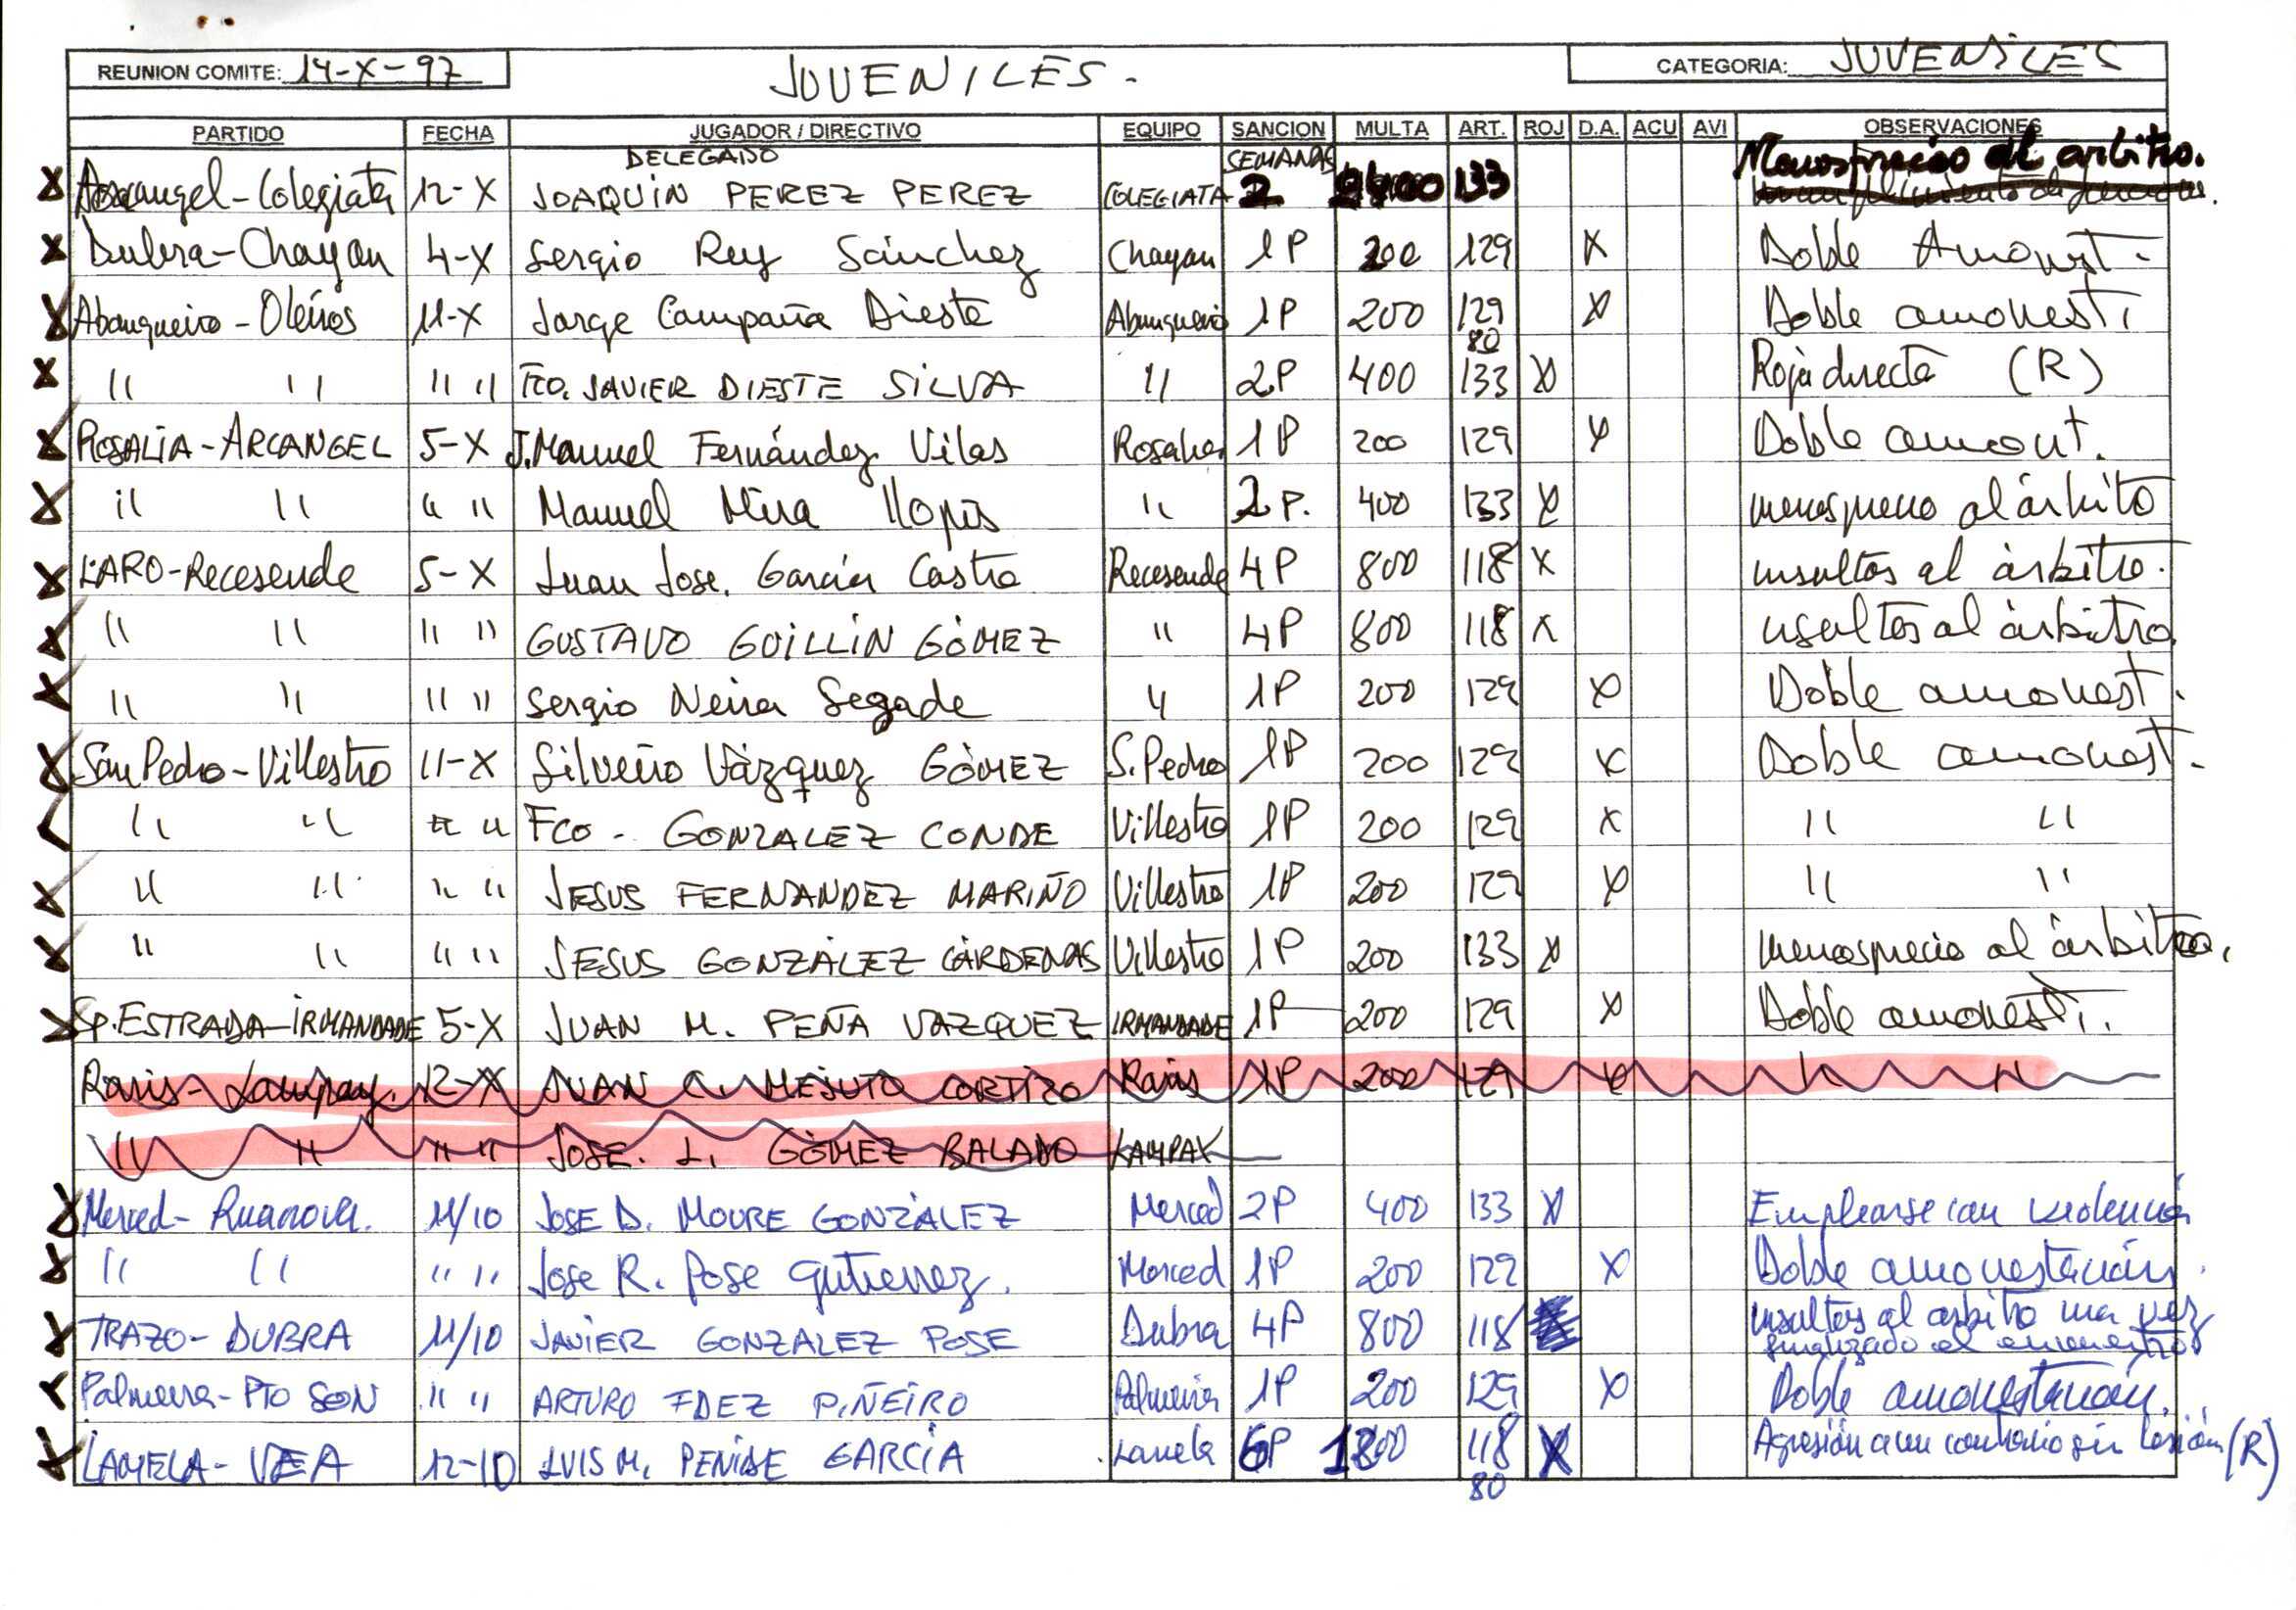 REUNION COMITE: 14-X-97 JUVENILES - CATEGORIA: JUVENILES
PARTIDO FECHA JUGADOR / DIRECTIVO EQUIPO SANCION MULTA ART. ROJ D.A. ACU AVI OBSERVACIONES
DELEGADO SEMANAS
X Arcangel-Colegiata 12-X JOAQUIN PEREZ PEREZ COLEGIATA 2 133 Menosprecio al arbitro.
X Dubra-Chayan 4-X Sergio Rey Sánchez Chayan 1P 200 129 X Doble Amonest.-
X Abanqueiro-Oleiros 11-X Jorge Campaña Dieste Abanqueiro 1P 200 129 X Doble amonest.
80
X " " " " FCO. JAVIER DIESTE SILVA " 2P 400 133 X Roja directa (R)
X ROSALIA-ARCANGEL 5-X J.Manuel Fernández Vilas Rosalia 1P 200 129 X Doble amont.
X " " " " Manuel Mira Llopis " 2P. 400 133 X menosprecio al árbitro
X LARO-Recesende 5-X Juan Jose. García Castro Recesende 4P 800 118 X insultos al àrbitro.
X " " " " GUSTAVO GUILLIN GÓMEZ " 4P 800 118 X insultos al àrbitro.
X " " " " Sergio Neira Segade " 1P 200 129 X Doble amonest.
X San Pedro-Villestro 11-X Silverio Vázquez GÓMEZ S.Pedro 1P 200 129 X Doble amonest.-
" " " " FCO - GONZALEZ CONDE Villestro 1P 200 129 X " "
X " " " " JESUS FERNANDEZ MARIÑO Villestro 1P 200 129 X " "
X " " " " JESUS GONZÁLEZ CÁRDENAS Villestro 1P 200 133 X menosprecio al árbitro.
X Sp.ESTRADA-IRMANDADE 5-X JUAN M. PEÑA VAZQUEZ IRMANDADE 1P 200 129 X Doble amonest.
Rairis-Lampay. 12-X JUAN C. MEJUTO CORTIZO Rairis 1P 200 129 X " "
" " " " JOSE. L. GÓMEZ BALADO LAMPAY
X Merced-Ruanova. 11/10 JOSE D. MOURE GONZÁLEZ Merced 2P 400 133 X Emplearse con violencia
X " " " " Jose R. Pose Gutierrez. Merced 1P 200 129 X Doble amonestación.
X TRAZO-DUBRA 11/10 JAVIER GONZALEZ POSE Dubra 4P 800 118 insultos al arbitro una vez
finalizado el encuentro
X Palmeira-PTO SON " " ARTURO FDEZ PIÑEIRO Palmeira 1P 200 129 X Doble amonestación.
X LAMELA-VEA 12-10 LUIS M. PENIDE GARCÍA Lamela 6P 1200 118 X Agresión a un contrario sin lesión (R)
80